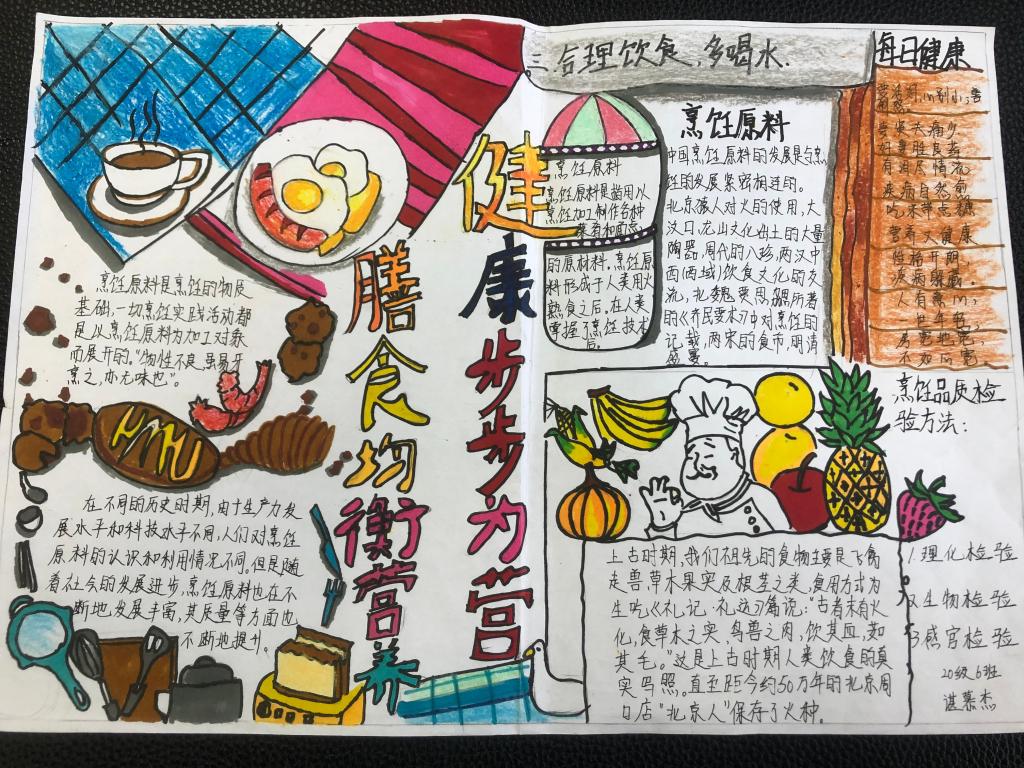 健康步步为营
膳食均衡营养
烹饪原料是烹饪的物质
基础,一切烹饪实践活动都
是以烹饪原料为加工对象
而展开的。"物性不良,虽易牙
烹之,亦无味也"。
在不同的历史时期,由于生产力发
展水平和科技水平不同,人们对烹饪
原料的认识和利用情况不同。但是随
着社会的发展进步,烹饪原料也在不
断地发展丰富,其质量等方面也
不断地提升。
三.合理饮食,多喝水.
烹饪原料
烹饪原料是指用以
烹饪加工制作各种
菜肴和面点
的原材料。烹饪原
料形成于人类用火
熟食之后,在人类
掌握了烹饪技术
后。
烹饪原料
中国烹饪原料的发展是与烹
饪的发展紧密相连的。
北京猿人对火的使用,大
汶口,龙山文化出土的大量
陶器,周代的八珍,两汉中
西(西域)饮食文化的交
流,北魏贾思勰所著
的《齐民要术》中对烹饪的
记载,两宋的食市,明清
盛宴。
每日健康
有泪尽情流
疾病自然愈
营养又健康
性格开朗,
疾病躲藏。
烹饪品质检
验方法:
1.理化检验
2.生物检验
3.感官检验
20级6班
谌慕杰
上古时期,我们祖先的食物主要是飞禽
走兽草木果实及根茎之类,食用方式为
生吃《礼记·礼运》篇说:古者未有火
化,食草木之实、鸟兽之肉,饮其血,茹
其毛。"这是上古时期人类饮食的真
实写照。直至距今约50万年的北京周
口店"北京人"保存了火种。